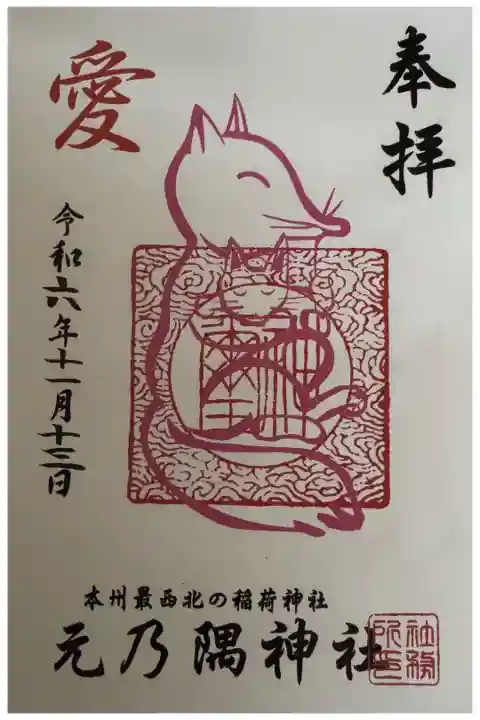 奉拝
愛
令和六年十一月十三日
本州最西北の稲荷神社
元乃隅神社
社務所印